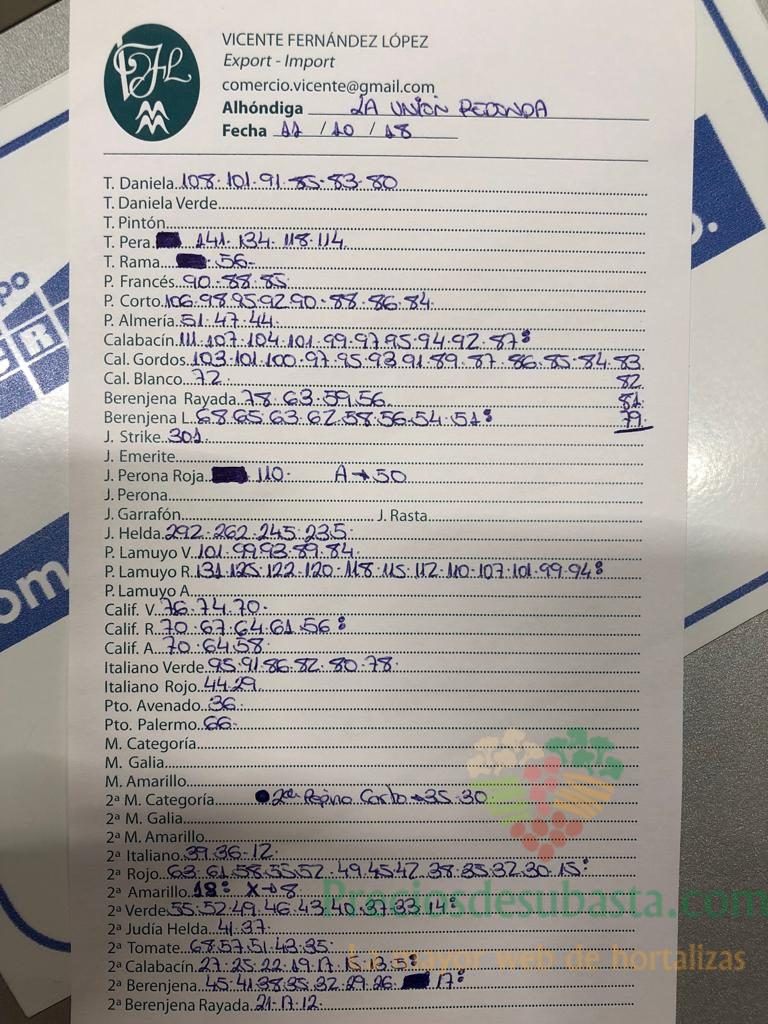 VICENTE FERNÁNDEZ LÓPEZ
Export - Import
comercio.vicente@gmail.com
Alhóndiga LA UNIÓN REDONDA
Fecha 11 / 10 / 18
T. Daniela 108·101·91·85·83·80
T. Daniela Verde
T. Pintón
T. Pera 141·134·118·114
T. Rama 56
P. Francés 90·88·85
P. Corto 106·98·95·92·90·88·86·84
P. Almería 51·47·44
Calabacín 111·107·104·101·99·97·95·94·92·87:
Cal. Gordos 103·101·100·97·95·93·91·89·87·86·85·84·83
Cal. Blanco 72 82
Berenjena Rayada 78·63·59·56 81
Berenjena L. 68·65·63·62·58·56·54·51: 79
J. Strike 301
J. Emerite
J. Perona Roja 110 A→50
J. Perona
J. Garrafón J. Rasta
J. Helda 292·262·245·235
P. Lamuyo V. 101·99·93·89·84
P. Lamuyo R. 131·125·122·120·118·115·112·110·107·101·99·94:
P. Lamuyo A.
Calif. V. 76·74·70
Calif. R. 70·67·64·61·56:
Calif. A. 70·64·58
Italiano Verde 95·91·86·82·80·78
Italiano Rojo 44·29
Pto. Avenado 36
Pto. Palermo 66
M. Categoría
M. Galia
M. Amarillo
2ª M. Categoría 2ª Pepino Corto→35·30
2ª M. Galia
2ª M. Amarillo
2ª Italiano 39·36·12
2ª Rojo 63·61·58·55·52·49·45·42·38·35·32·30·15:
2ª Amarillo 18: X→8
2ª Verde 55·52·49·46·43·40·37·33·14:
2ª Judía Helda 41·37
2ª Tomate 68·57·51·43·35
2ª Calabacín 27·25·22·19·17·15·13·5:
2ª Berenjena 45·41·38·35·32·29·26 17:
2ª Berenjena Rayada 21·17·12
Preciosdesubasta.com
La mayor web de hortalizas